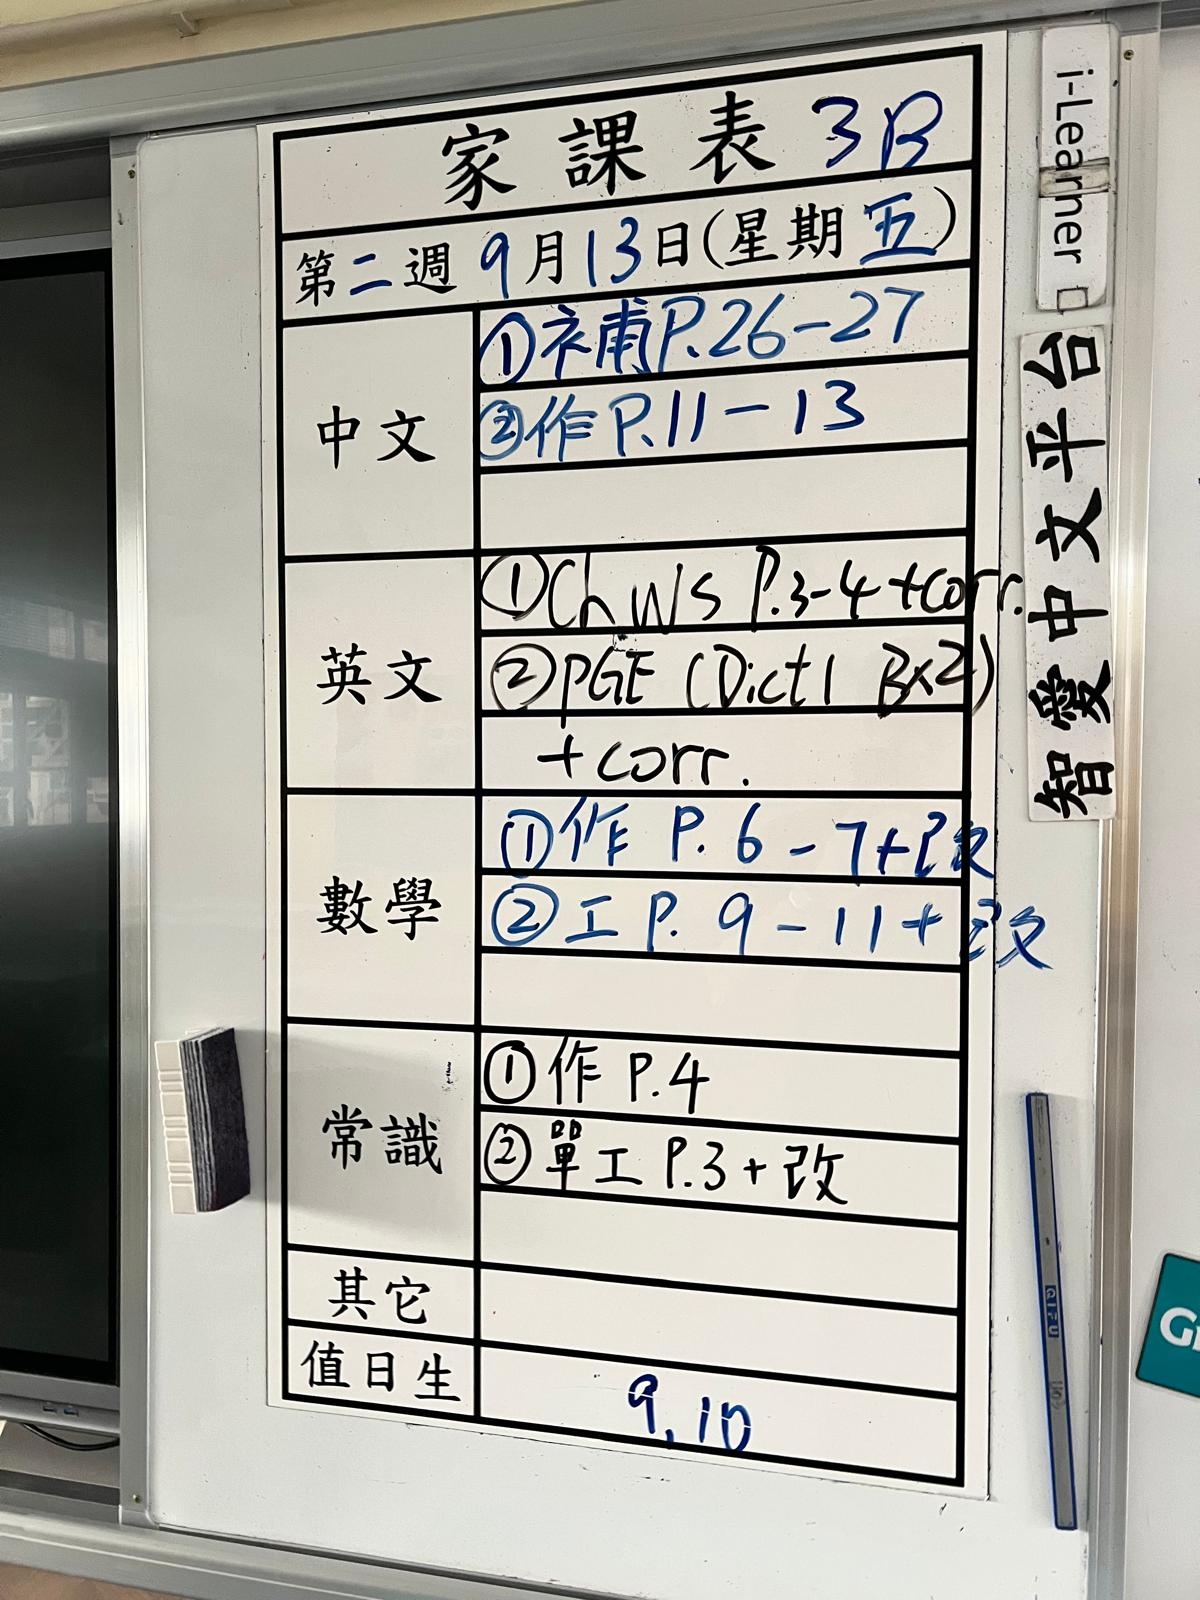 家課表 3B
第二週 9月13日(星期五)
中文
①補P.26-27
②作P.11-13
英文
①Ch.WS P.3-4+corr.
②PGE (Dict1 Bx2)
+corr.
數學
①作 P.6-7+改
②工 P.9-11+改
常識
①作 P.4
②單工 P.3+改
其它
值日生
9,10
i-Learner
智愛中文平台
QIFU
G